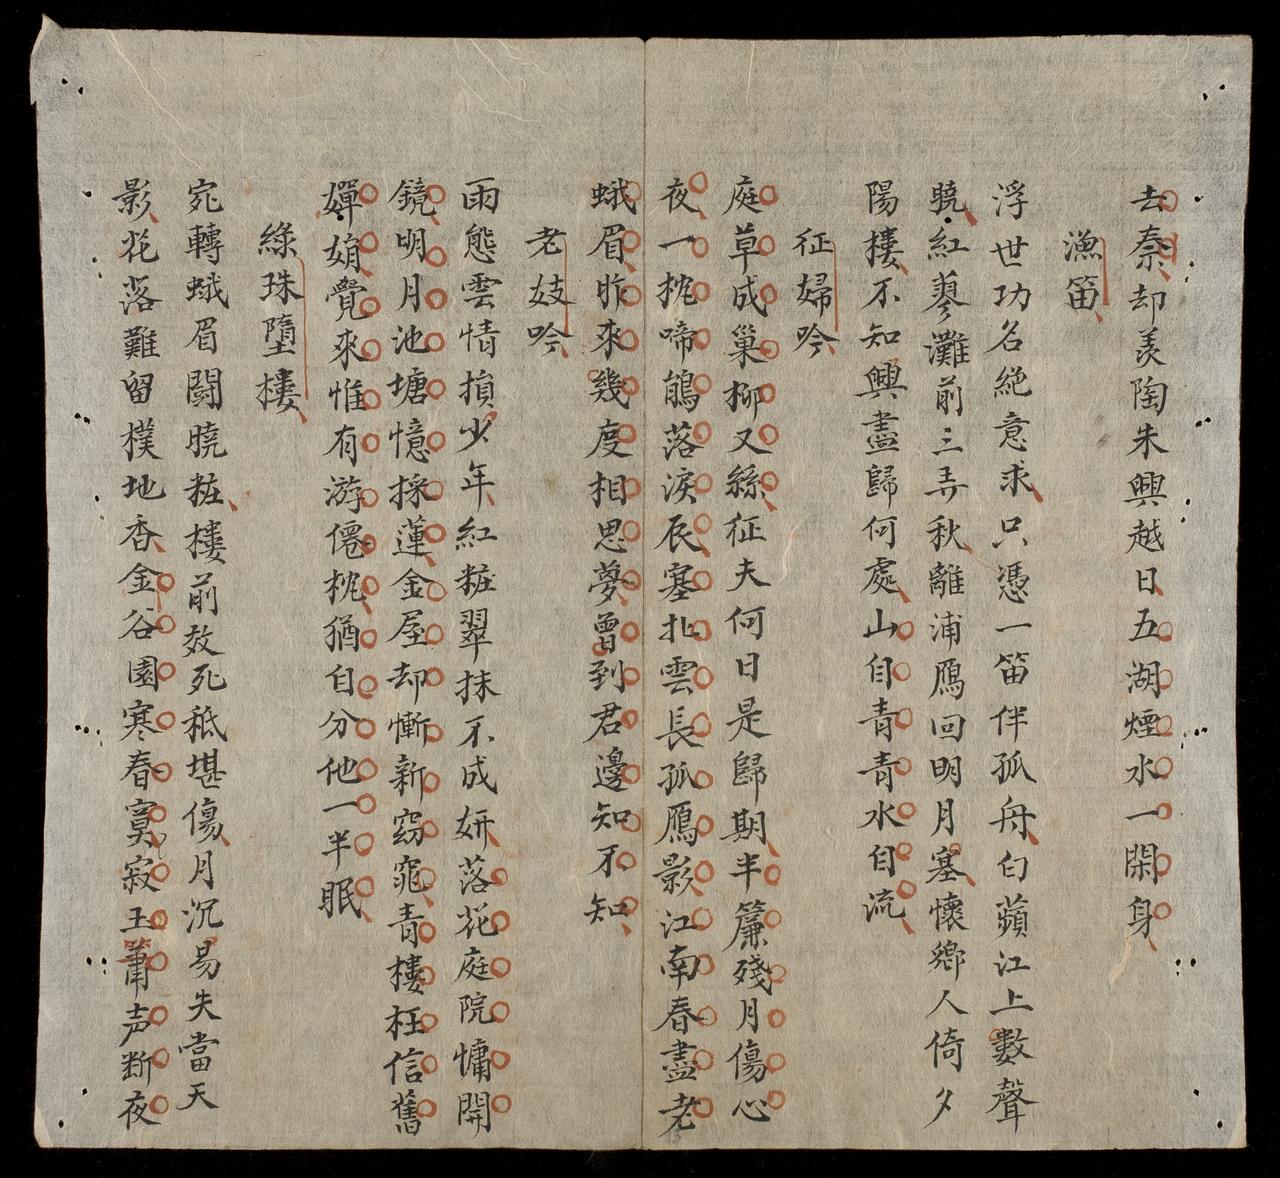 去秦却羡陶朱興越日五湖煙水一閑身
漁笛
浮世功名絶意求只憑一笛伴孤舟白蘋江上數聲
曉紅蓼灘前三弄秋離浦鴈回明月塞懷鄉人倚夕
陽樓不知興盡歸何處山自青青水自流
征婦吟
庭草成巢柳又絲征夫何日是歸期半簾殘月傷心
夜一枕啼鵑落淚辰塞北雲長孤鴈影江南春盡老
蛾眉昨來幾度相思夢曾到君邊知不知
老妓吟
雨態雲情損少年紅粧翠抹不成妍落花庭院慵開
鏡明月池塘憶採蓮金屋却慚新窈窕青樓枉信舊
嬋娟覺來惟有游僊枕猶自分他一半眠
綠珠墮樓
宛轉蛾眉鬪曉粧樓前效死秪堪傷月沉易失當天
影花落難留樸地香金谷園寒春寞寂玉簫声断夜